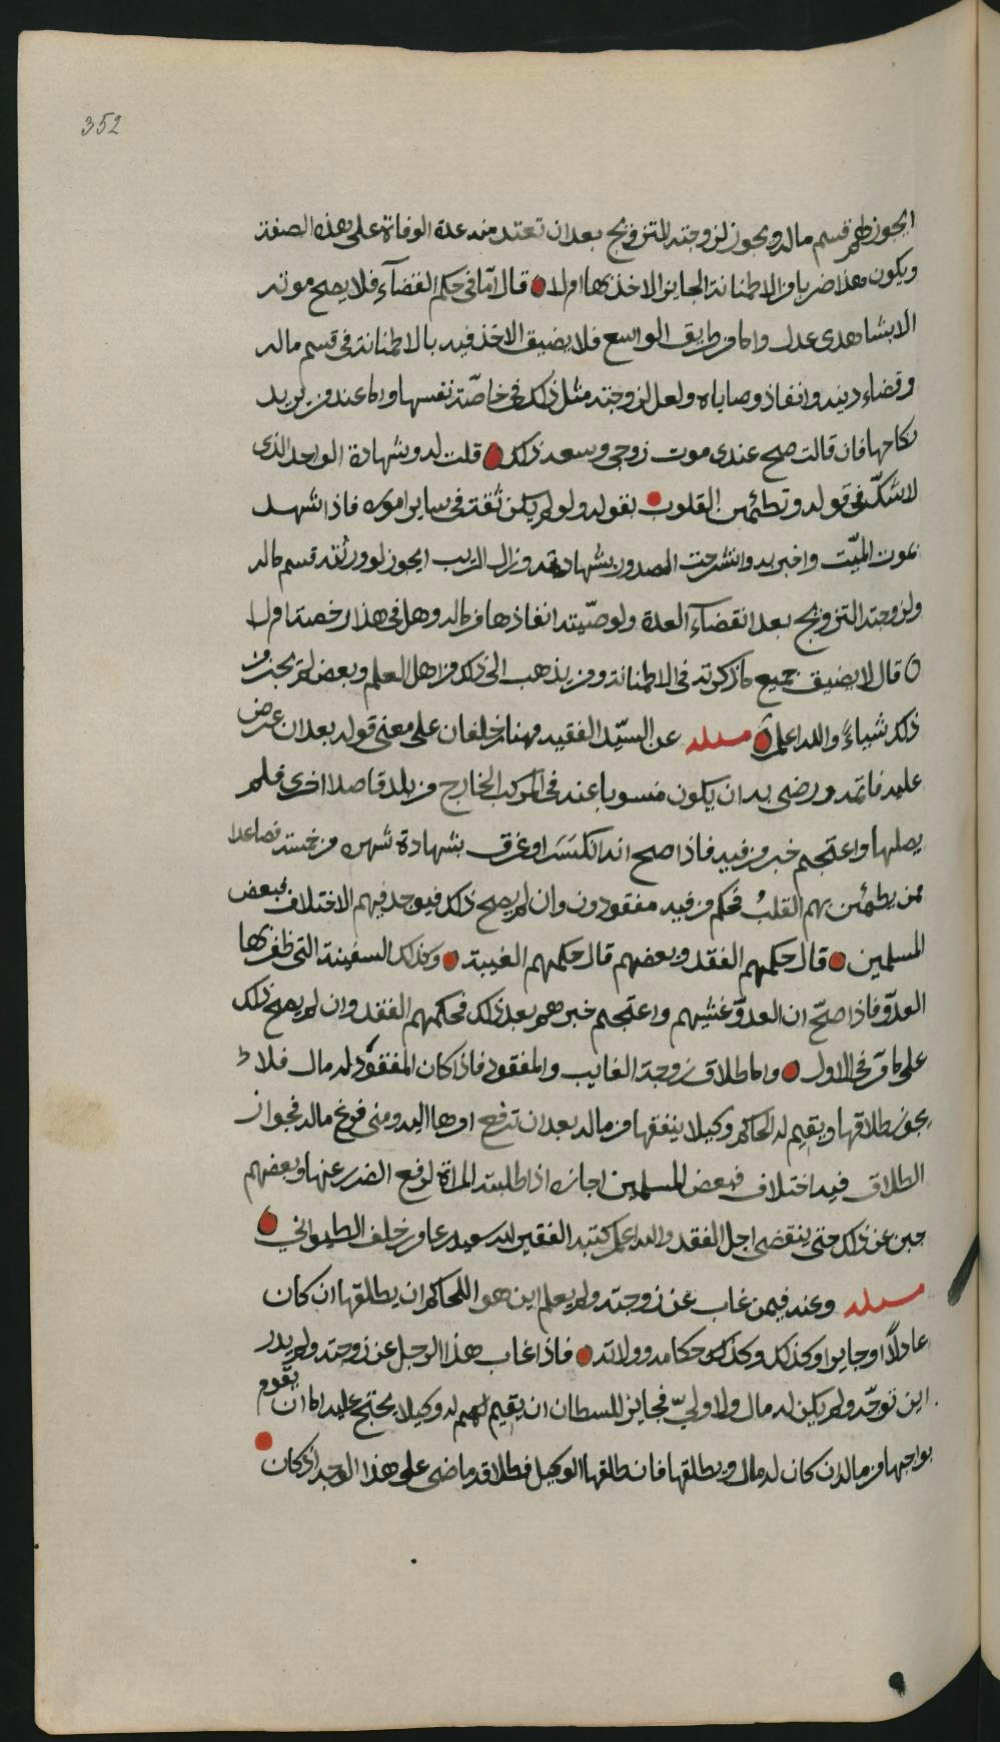 352
ايجوز لهم قسم ماله ويجوز لزوجته التزويج بعد ان تعتد منه عدة الوفاة على هذه الصفة
ويكون هذا ضربا من الاطمنانة الجايز الاخذ بها ام لا قال اما في حكم القضآء فلا يصح موته
الا بشاهدي عدل واما من طريق الواسع فلا يضيق الاخذ فيه بالاطمنانة في قسم ماله
وقضاء دينه وانفاذ وصاياه ولعل لزوجته مثل ذلك في خاصّة نفسها واما عند من يريد
نكاحها فان قالت صح عندي موت زوجي وسعه ذلك قلت له وشهادة الواحد الذي
لا شكّ في قوله وتطمئن القلوب بقوله ولو لم يكن ثقة في ساير اموره فاذا شهد
بموت الميّت واخبر به وانشرحت الصدور بشهادته وزال الريب ايجوز لورثته قسم ماله
ولزوجته التزويج بعد انقضآء العدة ولوصيّته انفاذها من ماله وهل في هذا رخصة ام لا
قال لا يضيق جميع ما ذكرته في الاطمنانة ومن يذهب الى ذلك من اهل العلم وبعض لم يجز من
ذلك شياءً والله اعلم مسئله عن السيّد الفقيه مهنا بن خلفان على معنى قوله بعد ان عرض
عليه فاتمه ورضي به ان يكون منسوبا عنه في المركب الخارج من بلد قاصدا اخرى فلم
يصلها واعتجم خبر من فيه فاذا صح انه انكسَر او غرق بشهادة شهره من خمسة فصاعدا
ممن يطمئن بهم القلبُ فحكم من فيه مفقودون وان لم يصح ذلك فيوجد فيهم الاختلاف فبعض
المسلمين قال حكمهم الفقد وبعضهم قال حكمهم الغيبة وكذلك السفينة التي ظفر بها
العدوّ فاذا صحّ ان العدوّ غشيهم واعتجم خبرهم بعد ذلك فحكمهم الفقد وان لم يصح ذلك
على ما مرّ في الاول واما طلاق زوجة الغايب والمفقود فاذا كان المفقود له مال فلا
يجوز طلاقها ويقيم له الحاكم وكيلا ينفقها من ماله بعد ان ترفع امرها اليه ومتى فرغ ماله فجواز
الطلاق فيه اختلاف فبعض المسلمين اجازه اذا طلبته المراة لرفع الضرر عنها وبعضهم
جبن عن ذلك حتى ينقضي اجل الفقد والله اعلم كتبه الفقير لله سعيد بن عامر بن خلف الطيواني
مسئله وعنه فيمن غاب عن زوجته ولم يعلم اين هو اللحاكم ان يطلقها ان كان
عادلاً او جايرا وكذلك وكذلك حكامه وولاته فاذا غاب هذا الرجل عن زوجته ولم يدر
اين توجّه ولم يكن له مال ولا وليّ فجايز للسطان ان يقيم لهم له وكيلا يحتج عليه اما ان يقوم
بواجبها من ماله ان كان له مال او يطلقها فان طلقها الوكيل فطلاقه ماضي على هذا الوجه اذ كان